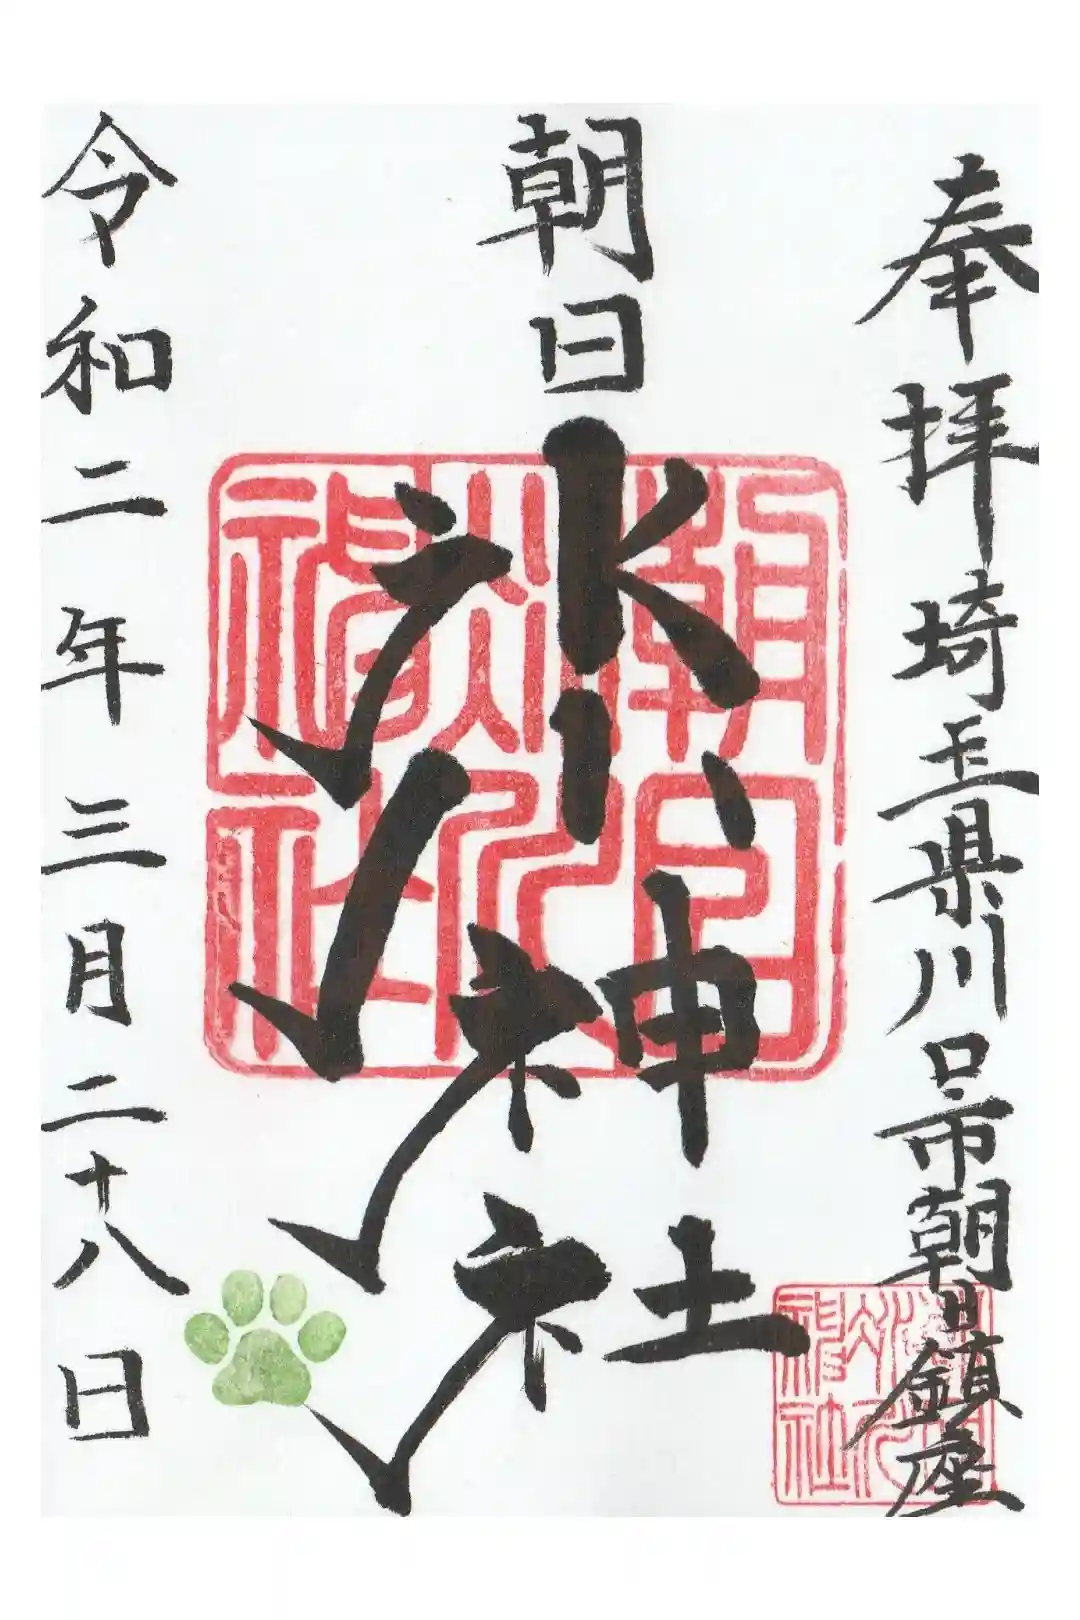 奉拝 埼玉県川口市朝日鎮座
朝日氷川神社
令和二年三月二十八日
朝日
氷川
神社